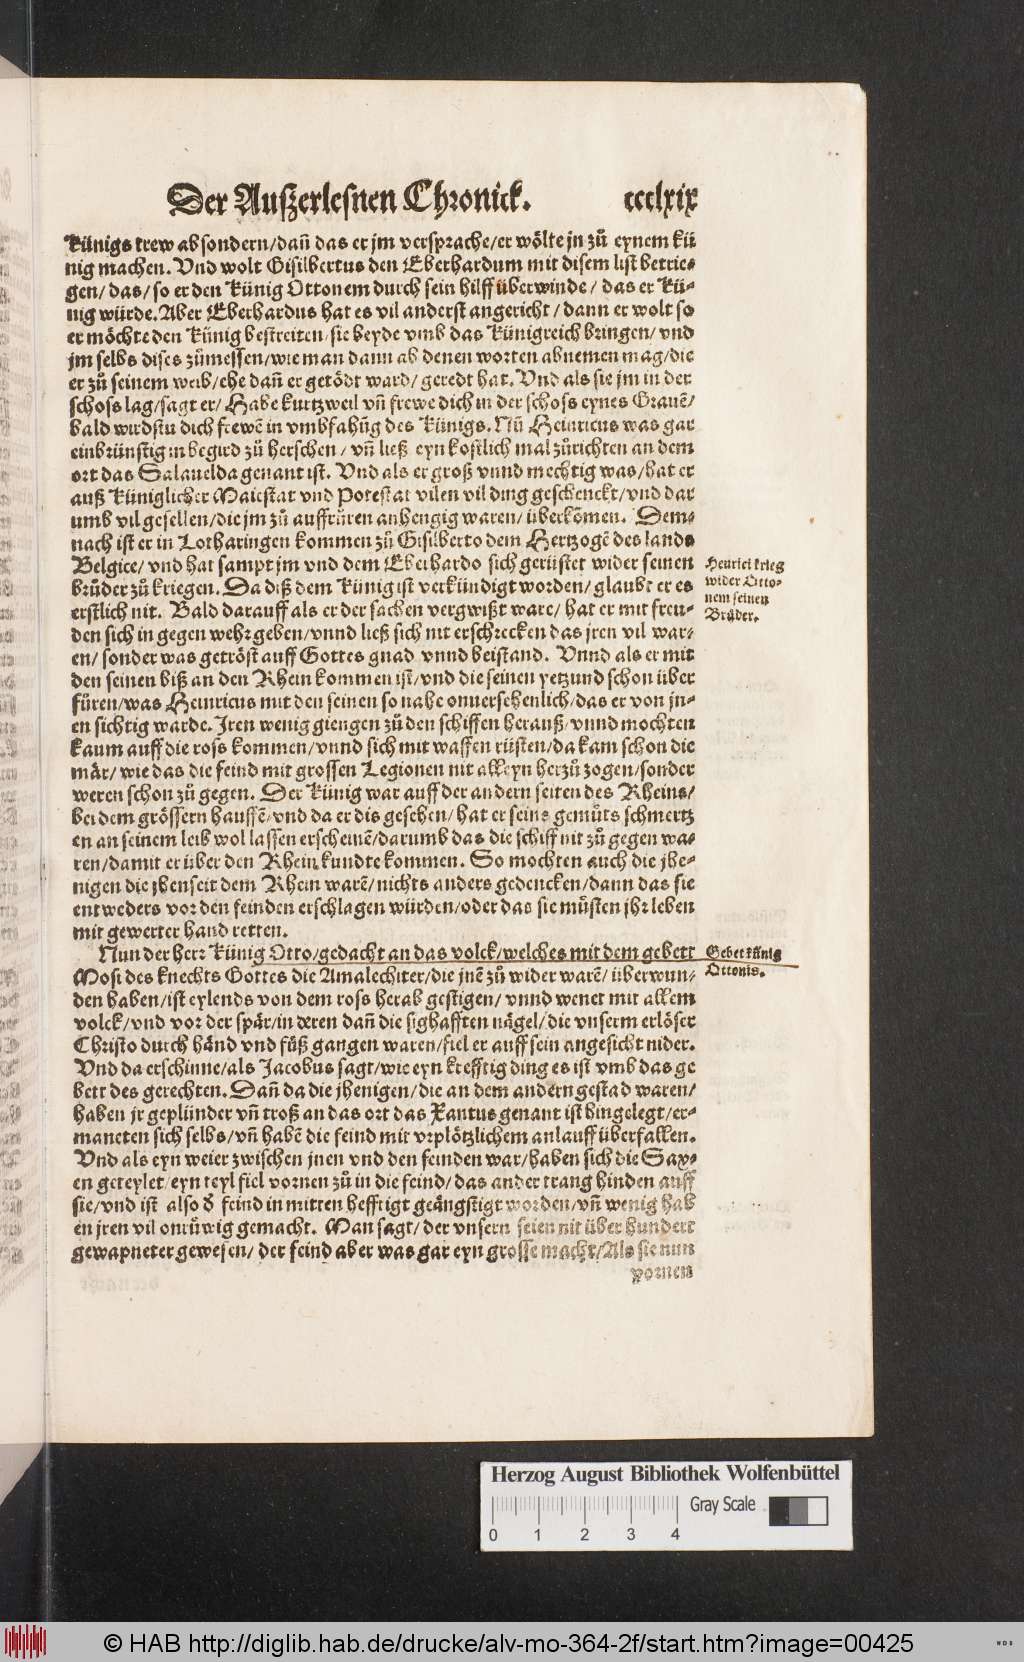 Der Auſzerleſnen Chronick. ccclxix
Künigs trew abſondern/ dañ das er jm verſprache/ er wölte jn zů eynem kü
nig machen. Vnd wolt Giſilbertus den Eberhardum mit diſem liſt betrie-
gen/ das/ ſo er den Künig Ottonem durch ſein hilff überwinde/ das er Kü-
nig würde. Aber Eberhardus hat es vil anderſt angericht/ dann er wolt ſo
er möchte den Künig beſtreiten/ ſie beyde vmb das Künigreich bringen/ vnd
jm ſelbs diſes zůmeſſen/ wie man dann ab denen worten abnemen mag/ die
er zů ſeinem weib/ ehe dañ er getödt ward/ geredt hat. Vnd als ſie jm in der
ſchoſs lag/ ſagt er/ Habe kurtzweil vñ frewe dich in der ſchoſs eynes Grauẽ/
bald wirdſtu dich frewẽ in vmbfahũg des Künigs. Nũ Heinricus was gar
einbrünſtig in begird zů herſchen/ vñ ließ eyn koſtlich mal zůrichten an dem
ort das Salauelda genant iſt. Vnd als er groß vnnd mechtig was/ hat er
auß Küniglicher Maieſtat vnd Poteſtat vilen vil ding geſchenckt/ vnd dar
umb vil geſellen/ die jm zů auffrůren anhengig waren/ überkõmen. Dem-
nach iſt er in Lotharingen kommen zů Giſilberto dem Hertzogẽ des lands
Belgice/ vnd hat ſampt jm vnd dem Eberhardo ſich gerüſtet wider ſeinen
brůder zů kriegen. Da diß dem Künig iſt verkündigt worden/ glaubt er es
erſtlich nit. Bald darauff als er der ſachen vergwißt ware/ hat er mit freu-
den ſich in gegen wehr geben/ vnnd ließ ſich nit erſchrecken das jren vil war-
en/ ſonder was getröſt auff Gottes gnad vnnd beiſtand. Vnnd als er mit
den ſeinen biß an den Rhein kommen iſt/ vnd die ſeinen yetzund ſchon über
fůren/ was Heinricus mit den ſeinen ſo nahe onuerſehenlich/ das er von jn-
en ſichtig warde. Jren wenig giengen zů den ſchiffen herauß/ vnnd mochten
kaum auff die roſs kommen/ vnnd ſich mit waffen rüſten/ da kam ſchon die
mär/ wie das die feind mit groſſen Legionen nit alleyn herzů zogen/ ſonder
weren ſchon zů gegen. Der Künig war auff der andern ſeiten des Rheins/
bei dem gröſſern hauffẽ/ vnd da er dis geſehen/ hat er ſeins gemůts ſchmertz
en an ſeinem leib wol laſſen erſcheinẽ/ darumb das die ſchiff nit zů gegen wa-
ren/ damit er über den Rhein kundte kommen. So mochten auch die jhe-
nigen die jhenſeit dem Rhein warẽ/ nichts anders gedencken/ dann das ſie
entweders vor den feinden erſchlagen würden/ oder das ſie můſten jhr leben
mit gewerter hand retten.
Nun der herr Künig Otto/ gedacht an das volck/ welches mit dem gebett
Moſi des knechts Gottes die Amalechiter/ die jnẽ zů wider warẽ/ überwun-
den haben/ iſt eylends von dem roſs herab geſtigen/ vnnd wenet mit allem
volck/ vnd vor der ſpär/ in deren dañ die ſighafften nägel/ die vnſerm erlöſer
Chriſto durch händ vnd füß gangen waren/ fiel er auff ſein angeſicht nider.
Vnd da erſchinne/ als Jacobus ſagt/ wie eyn krefftig ding es iſt vmb das ge
bett des gerechten. Dañ da die jhenigen/ die an dem andern geſtad waren/
haben jr geplünder vñ troß an das ort das Xantus genant iſt hingelegt/ er-
maneten ſich ſelbs/ vñ habẽ die feind mit vrplötzlichem anlauff überfallen.
Vnd als eyn weier zwiſchen jnen vnd den feinden war/ haben ſich die Sax-
en geteylet/ eyn teyl fiel vornen zů in die feind/ das ander trang hinden auff
ſie/ vnd iſt alſo d̕ feind in mitten hefftigt geängſtigt worden/ vñ wenig hab
en jren vil onrüwig gemacht. Man ſagt/ der vnſern ſeien nit über hundert
gewapneter geweſen/ der feind aber was gar eyn groſſe macht/ Als ſie nun
vornen
Henrici krieg
wider Otto-
nem ſeinen
Brůder.
Gebet künig
Ottonis.
Herzog August Bibliothek Wolfenbüttel
0 1 2 3 4 Gray Scale
© HAB http://diglib.hab.de/drucke/alv-mo-364-2f/start.htm?image=00425